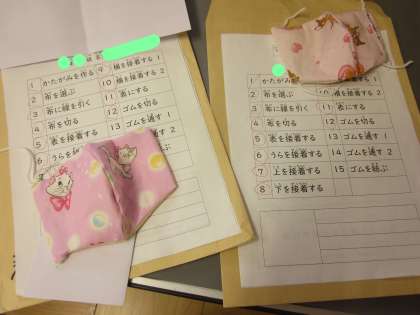 1 かたがみを作る
9 横を接着する 1
2 布を選ぶ
10 横を接着する 2
3 布に線を引く
11 表にする
4 布を切る
12 ゴムを切る
5 表を接着する
13 ゴムを通す 1
6 うらを
2
1 かたがみ
2 布を選ぶ
10 横を接着する 2
3 布に線を引く
11 表にする
4 布を切る
12 ゴムを切る
5 表を接着する
13 ゴムを通す 1
6 うらを接着する
14 ゴムを通す 2
7 上を接着する
15 ゴムを結ぶ
8 下を接着する